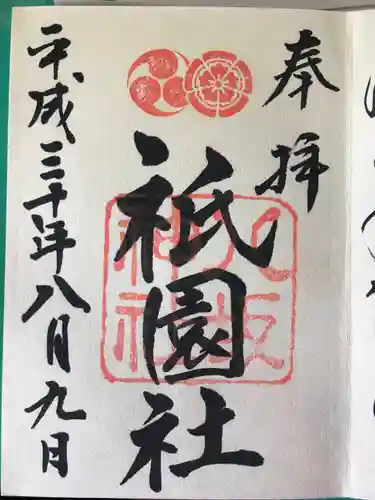 奉拝
祇園社
八坂神社
平成三十年八月九日